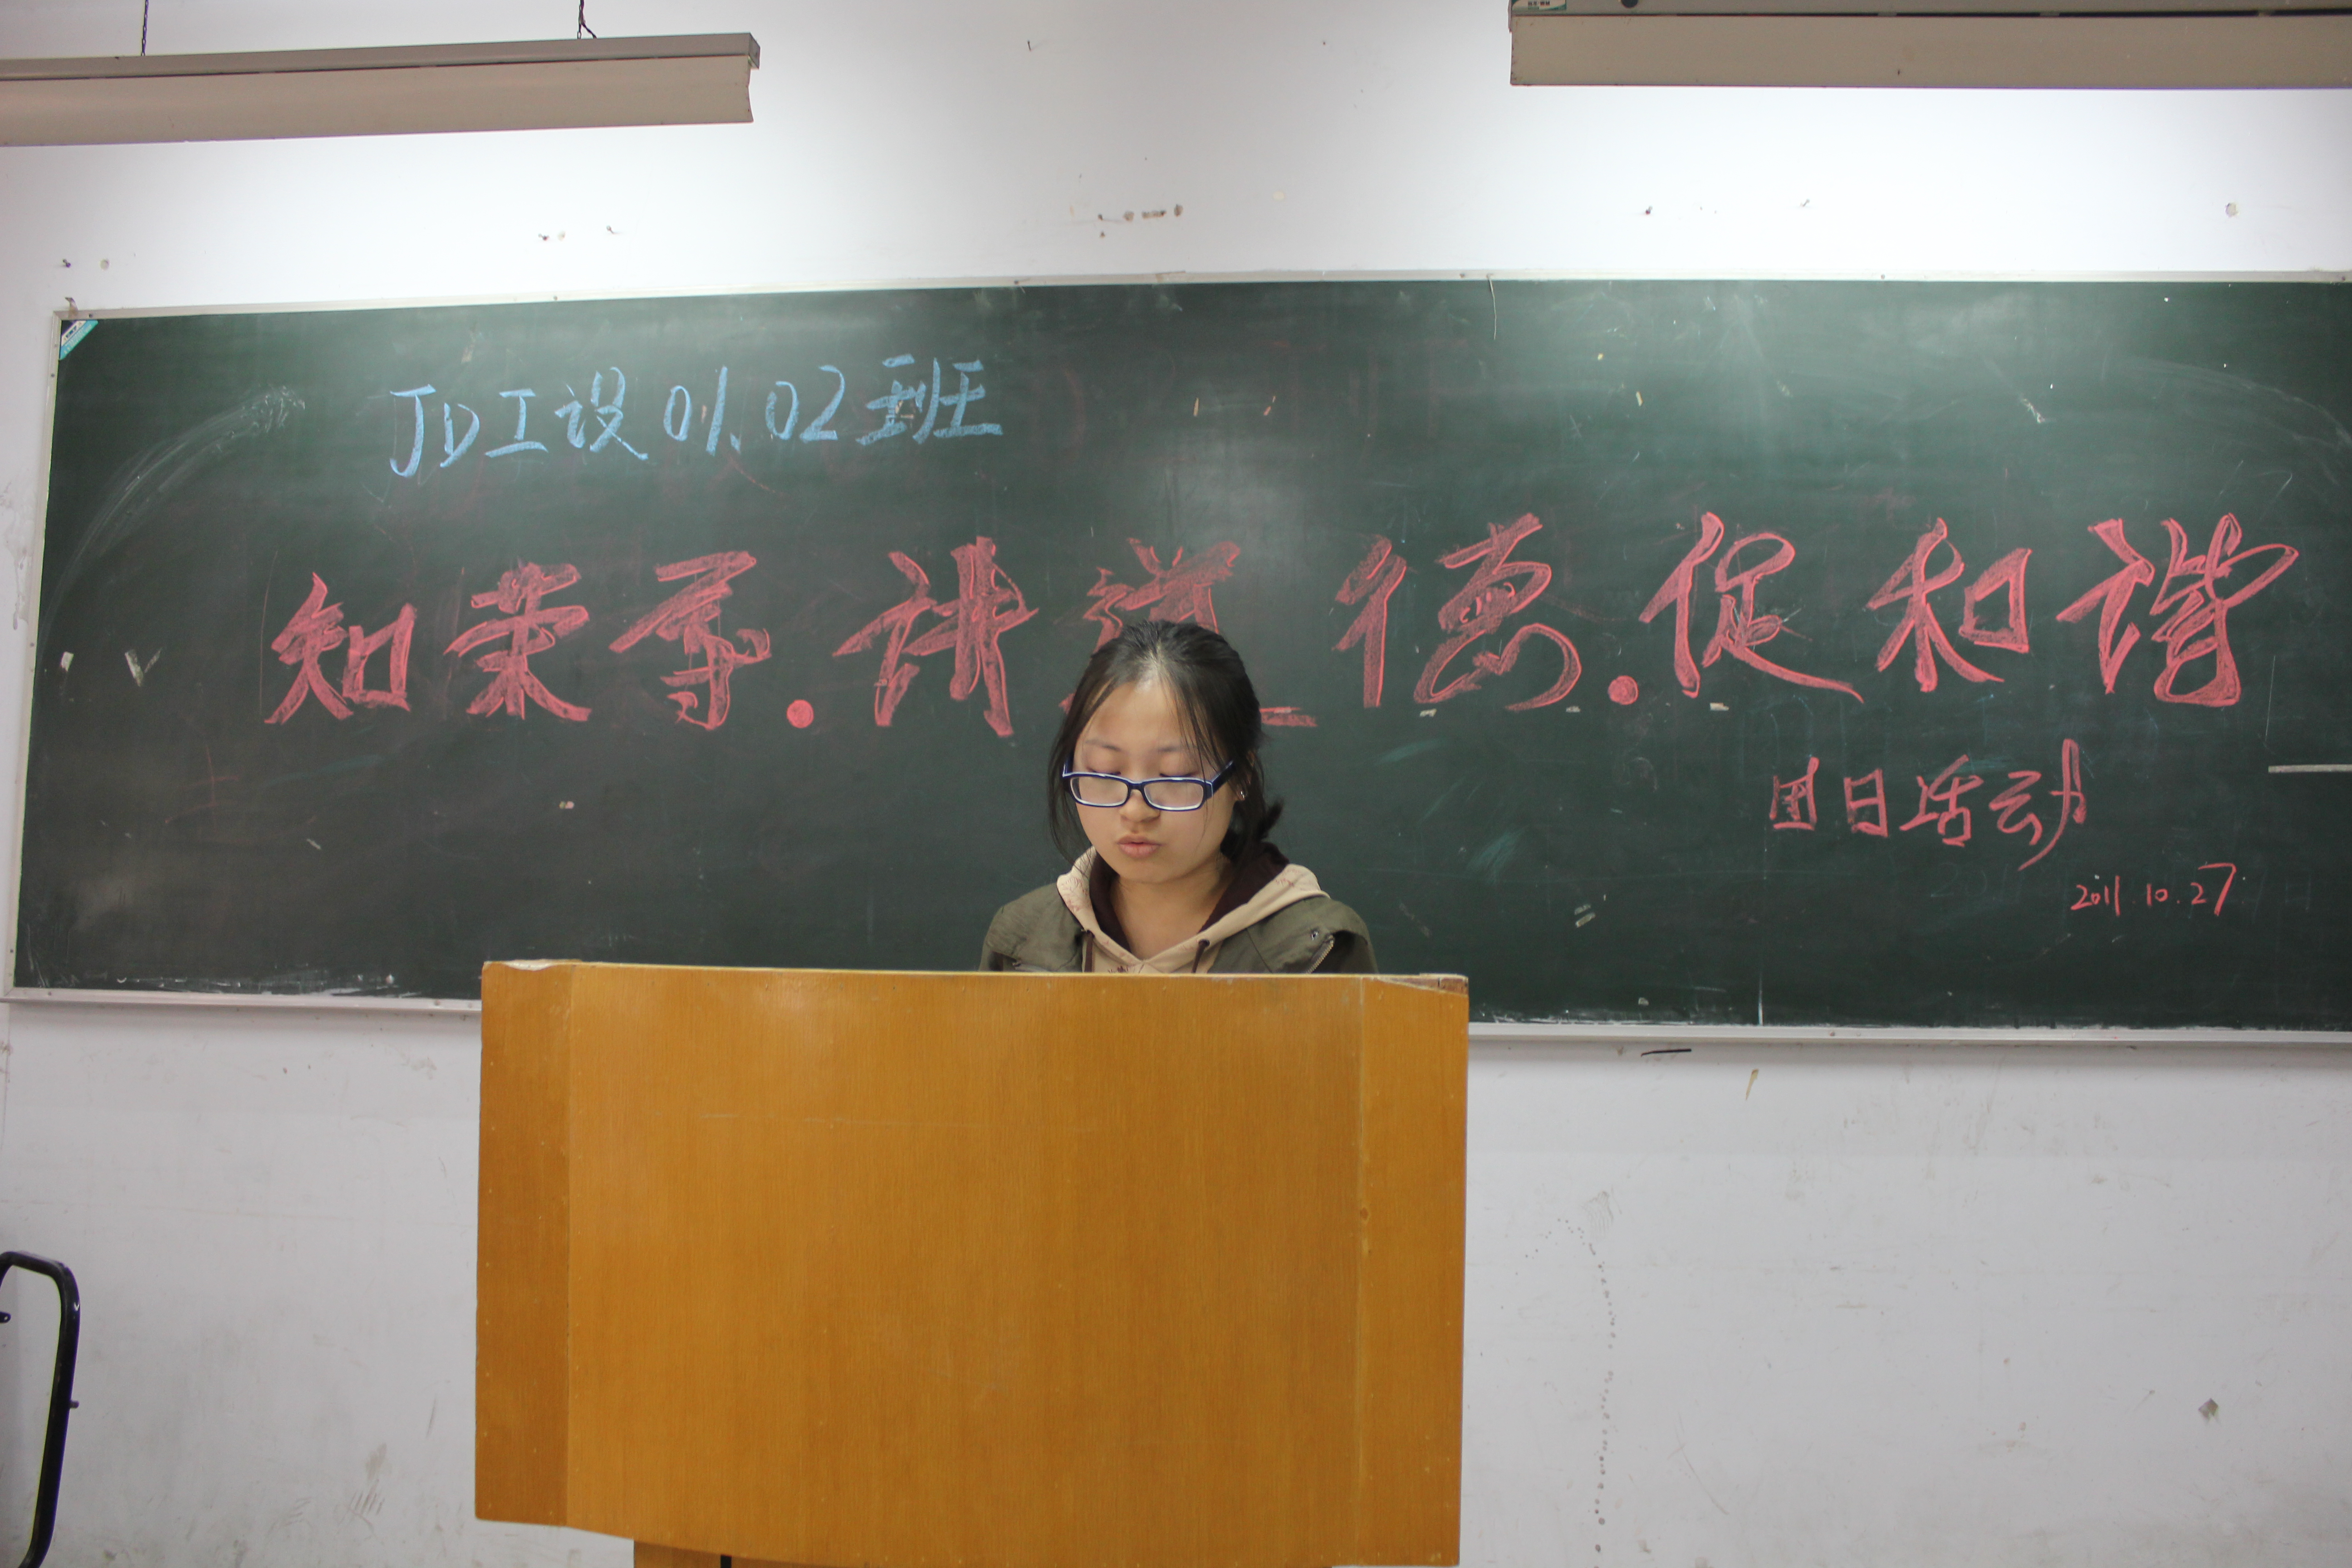 JD工设01.02班
知荣辱.讲道德.促和谐
团日活动
2011.10.27